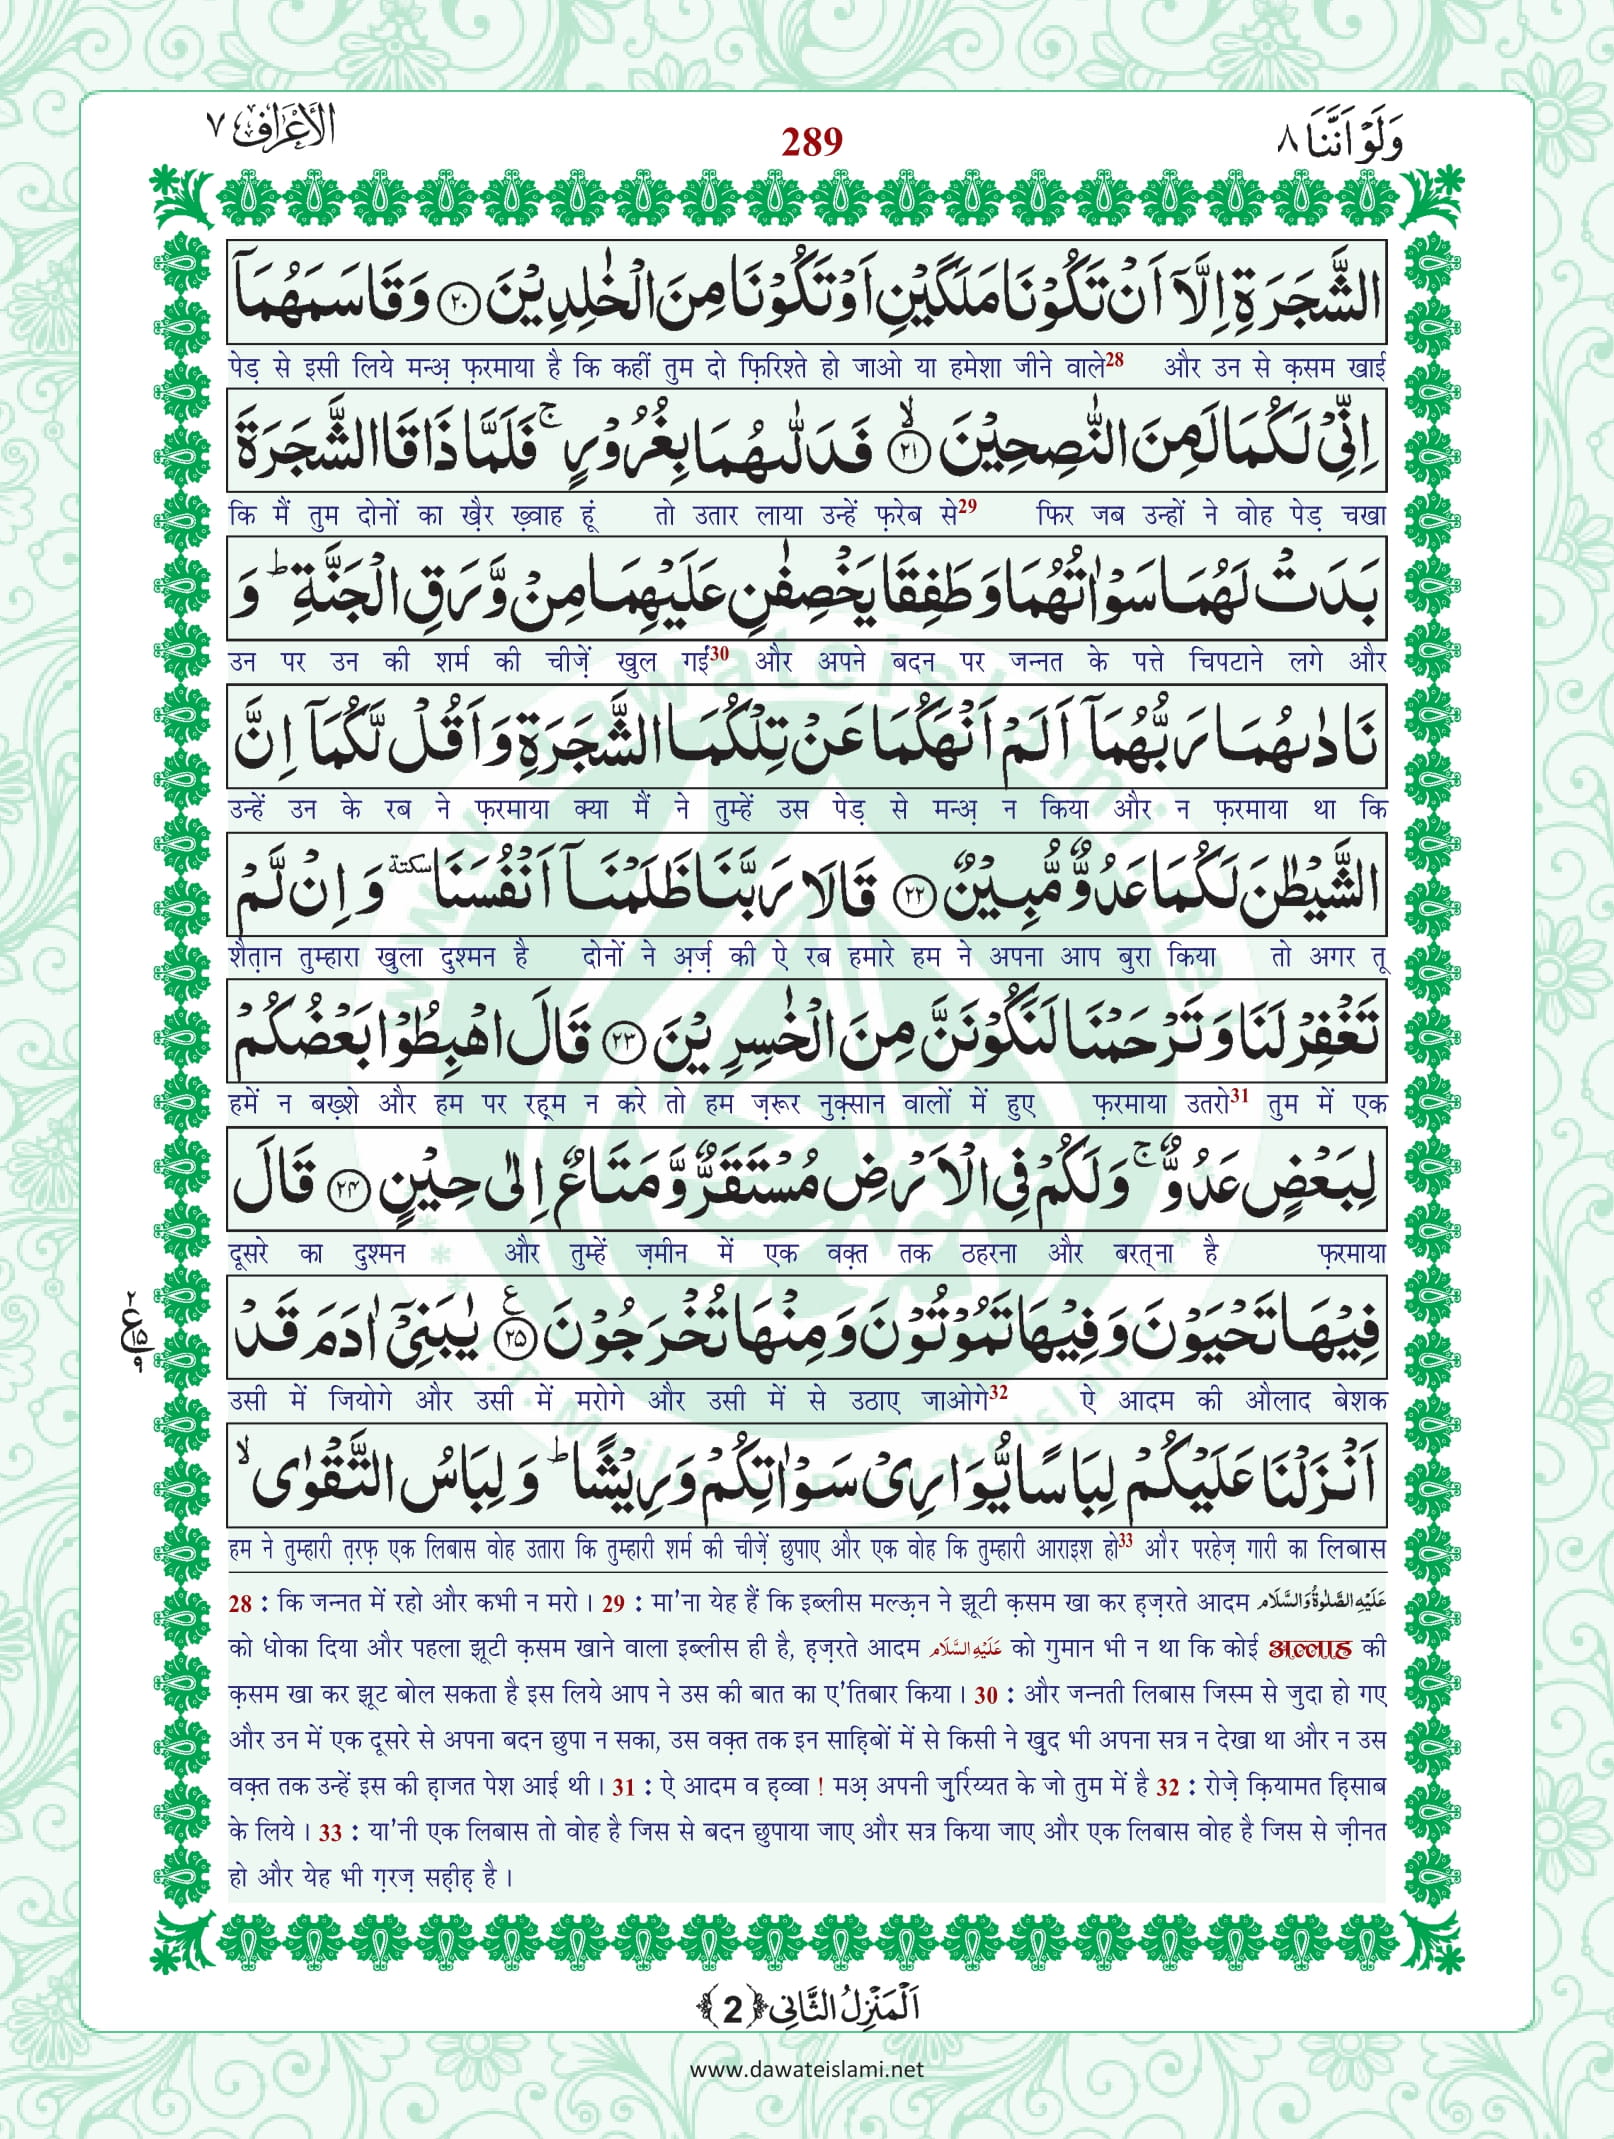 وَلَوْ اَنَّنَا ٨
289
اَلْاَعْرَاف ٧
الشَّجَرَةِ اِلَّاۤ اَنْ تَكُوْنَا مَلَكَیْنِ اَوْ تَكُوْنَا مِنَ الْخٰلِدِیْنَ ﴿۲۰﴾ وَ قَاسَمَهُمَاۤ
पेड़ से इसी लिये मन्अ़ फ़रमाया है कि कहीं तुम दो फ़िरिश्ते हो जाओ या हमेशा जीने वाले28 और उन से क़सम खाई
اِنِّیْ لَكُمَا لَمِنَ النّٰصِحِیْنَ ۙ﴿۲۱﴾ فَدَلّٰىهُمَا بِغُرُوْرٍ ۚ فَلَمَّا ذَاقَا الشَّجَرَةَ
कि मैं तुम दोनों का ख़ैर ख़्वाह हूं तो उतार लाया उन्हें फ़रेब से29 फिर जब उन्हों ने वोह पेड़ चखा
بَدَتْ لَهُمَا سَوْاٰتُهُمَا وَ طَفِقَا یَخْصِفٰنِ عَلَیْهِمَا مِنْ وَّرَقِ الْجَنَّةِ ؕ وَ
उन पर उन की शर्म की चीज़ें खुल गई30 और अपने बदन पर जन्नत के पत्ते चिपटाने लगे और
نَادٰىهُمَا رَبُّهُمَاۤ اَلَمْ اَنْهَكُمَا عَنْ تِلْكُمَا الشَّجَرَةِ وَ اَقُلْ لَّكُمَاۤ اِنَّ
उन्हें उन के रब ने फ़रमाया क्या मैं ने तुम्हें उस पेड़ से मन्अ़ न किया और न फ़रमाया था कि
الشَّیْطٰنَ لَكُمَا عَدُوٌّ مُّبِیْنٌ ﴿۲۲﴾ قَالَا رَبَّنَا ظَلَمْنَاۤ اَنْفُسَنَا سكتة وَ اِنْ لَّمْ
शैत़ान तुम्हारा खुला दुश्मन है दोनों ने अ़र्ज़ की ऐ रब हमारे हम ने अपना आप बुरा किया तो अगर तू
تَغْفِرْ لَنَا وَ تَرْحَمْنَا لَنَكُوْنَنَّ مِنَ الْخٰسِرِیْنَ ﴿۲۳﴾ قَالَ اهْبِطُوْا بَعْضُكُمْ
हमें न बख़्शे और हम पर रह़्म न करे तो हम ज़रूर नुक़्सान वालों में हुए फ़रमाया उतरो31 तुम में एक
لِبَعْضٍ عَدُوٌّ ۚ وَ لَكُمْ فِی الْاَرْضِ مُسْتَقَرٌّ وَّ مَتَاعٌ اِلٰى حِیْنٍ ﴿۲۴﴾ قَالَ
दूसरे का दुश्मन और तुम्हें ज़मीन में एक वक़्त तक ठहरना और बरत्ना है फ़रमाया
فِیْهَا تَحْیَوْنَ وَ فِیْهَا تَمُوْتُوْنَ وَ مِنْهَا تُخْرَجُوْنَ ﴿۲۵﴾ یٰبَنِیْۤ اٰدَمَ قَدْ
उसी में जियोगे और उसी में मरोगे और उसी में से उठाए जाओगे32 ऐ आदम की औलाद बेशक
اَنْزَلْنَا عَلَیْكُمْ لِبَاسًا یُّوَارِیْ سَوْاٰتِكُمْ وَ رِیْشًا ؕ وَ لِبَاسُ التَّقْوٰى ۙ
हम ने तुम्हारी त़रफ़ एक लिबास वोह उतारा कि तुम्हारी शर्म की चीज़ें छुपाए और एक वोह कि तुम्हारी आराइश हो33 और परहेज़ गारी का लिबास
28 : कि जन्नत में रहो और कभी न मरो । 29 : मा'ना येह हैं कि इब्लीस मल्ऊ़न ने झूटी क़सम खा कर ह़ज़रते आदम عَلَیْهِ الصَّلٰوةُ وَالسَّلَام
को धोका दिया और पहला झूटी क़सम खाने वाला इब्लीस ही है, ह़ज़रते आदम عَلَیْهِ السَّلَام को गुमान भी न था कि कोई अल्लाह की
क़सम खा कर झूट बोल सकता है इस लिये आप ने उस की बात का ए'तिबार किया । 30 : और जन्नती लिबास जिस्म से जुदा हो गए
और उन में एक दूसरे से अपना बदन छुपा न सका, उस वक़्त तक इन साहि़बों में से किसी ने ख़ुद भी अपना सत्र न देखा था और न उस
वक़्त तक उन्हें इस की ह़ाजत पेश आई थी । 31 : ऐ आदम व ह़व्वा ! मअ़ अपनी ज़ुर्रिय्यत के जो तुम में है 32 : रोज़े क़ियामत ह़िसाब
के लिये । 33 : या'नी एक लिबास तो वोह है जिस से बदन छुपाया जाए और सत्र किया जाए और एक लिबास वोह है जिस से ज़ीनत
हो और येह भी ग़रज़ सह़ीह़ है ।
اَلْمَنْزِلُ الثَّانِی ﴿2﴾
www.dawateislami.net